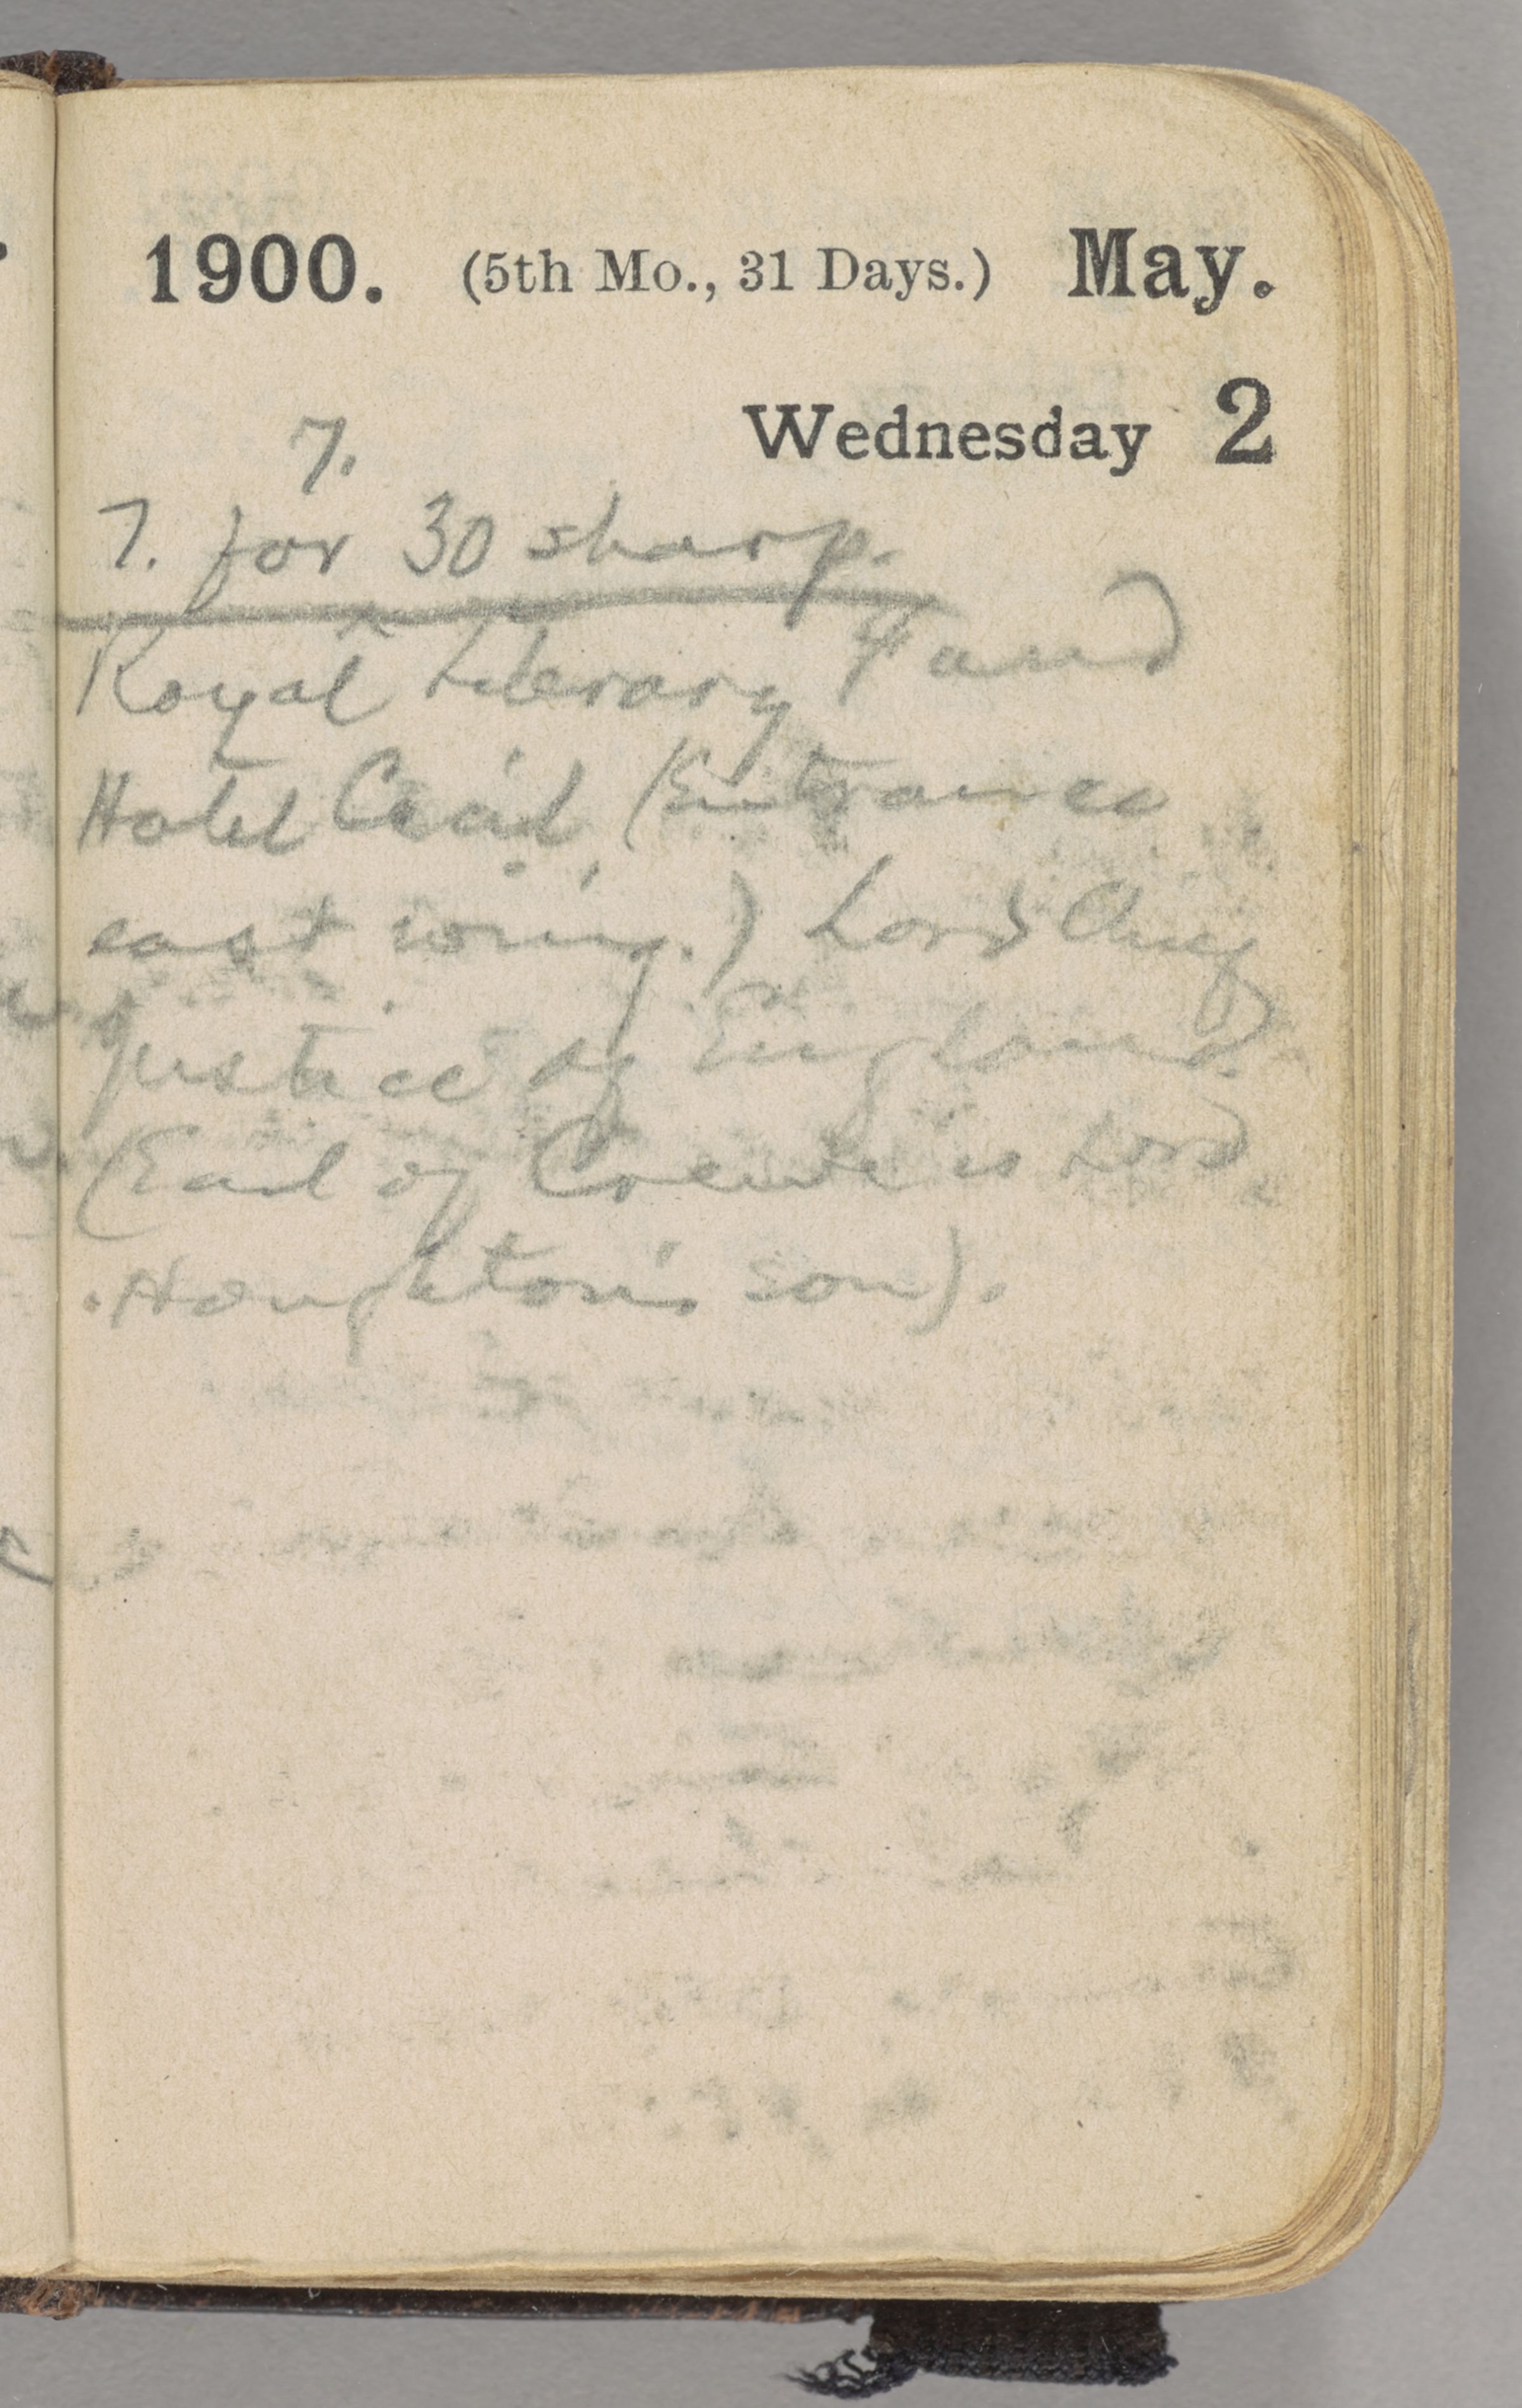 1900. (5th Mo., 31 Days.) May.
Wednesday 2
7.
7. for 30 sharp.
Royal Literary Fund
Hotel Cecil, (Entrance
east wing.) Lord Chief
Justice of England.
(Earl of Crewe is Lord
Houghton's son).